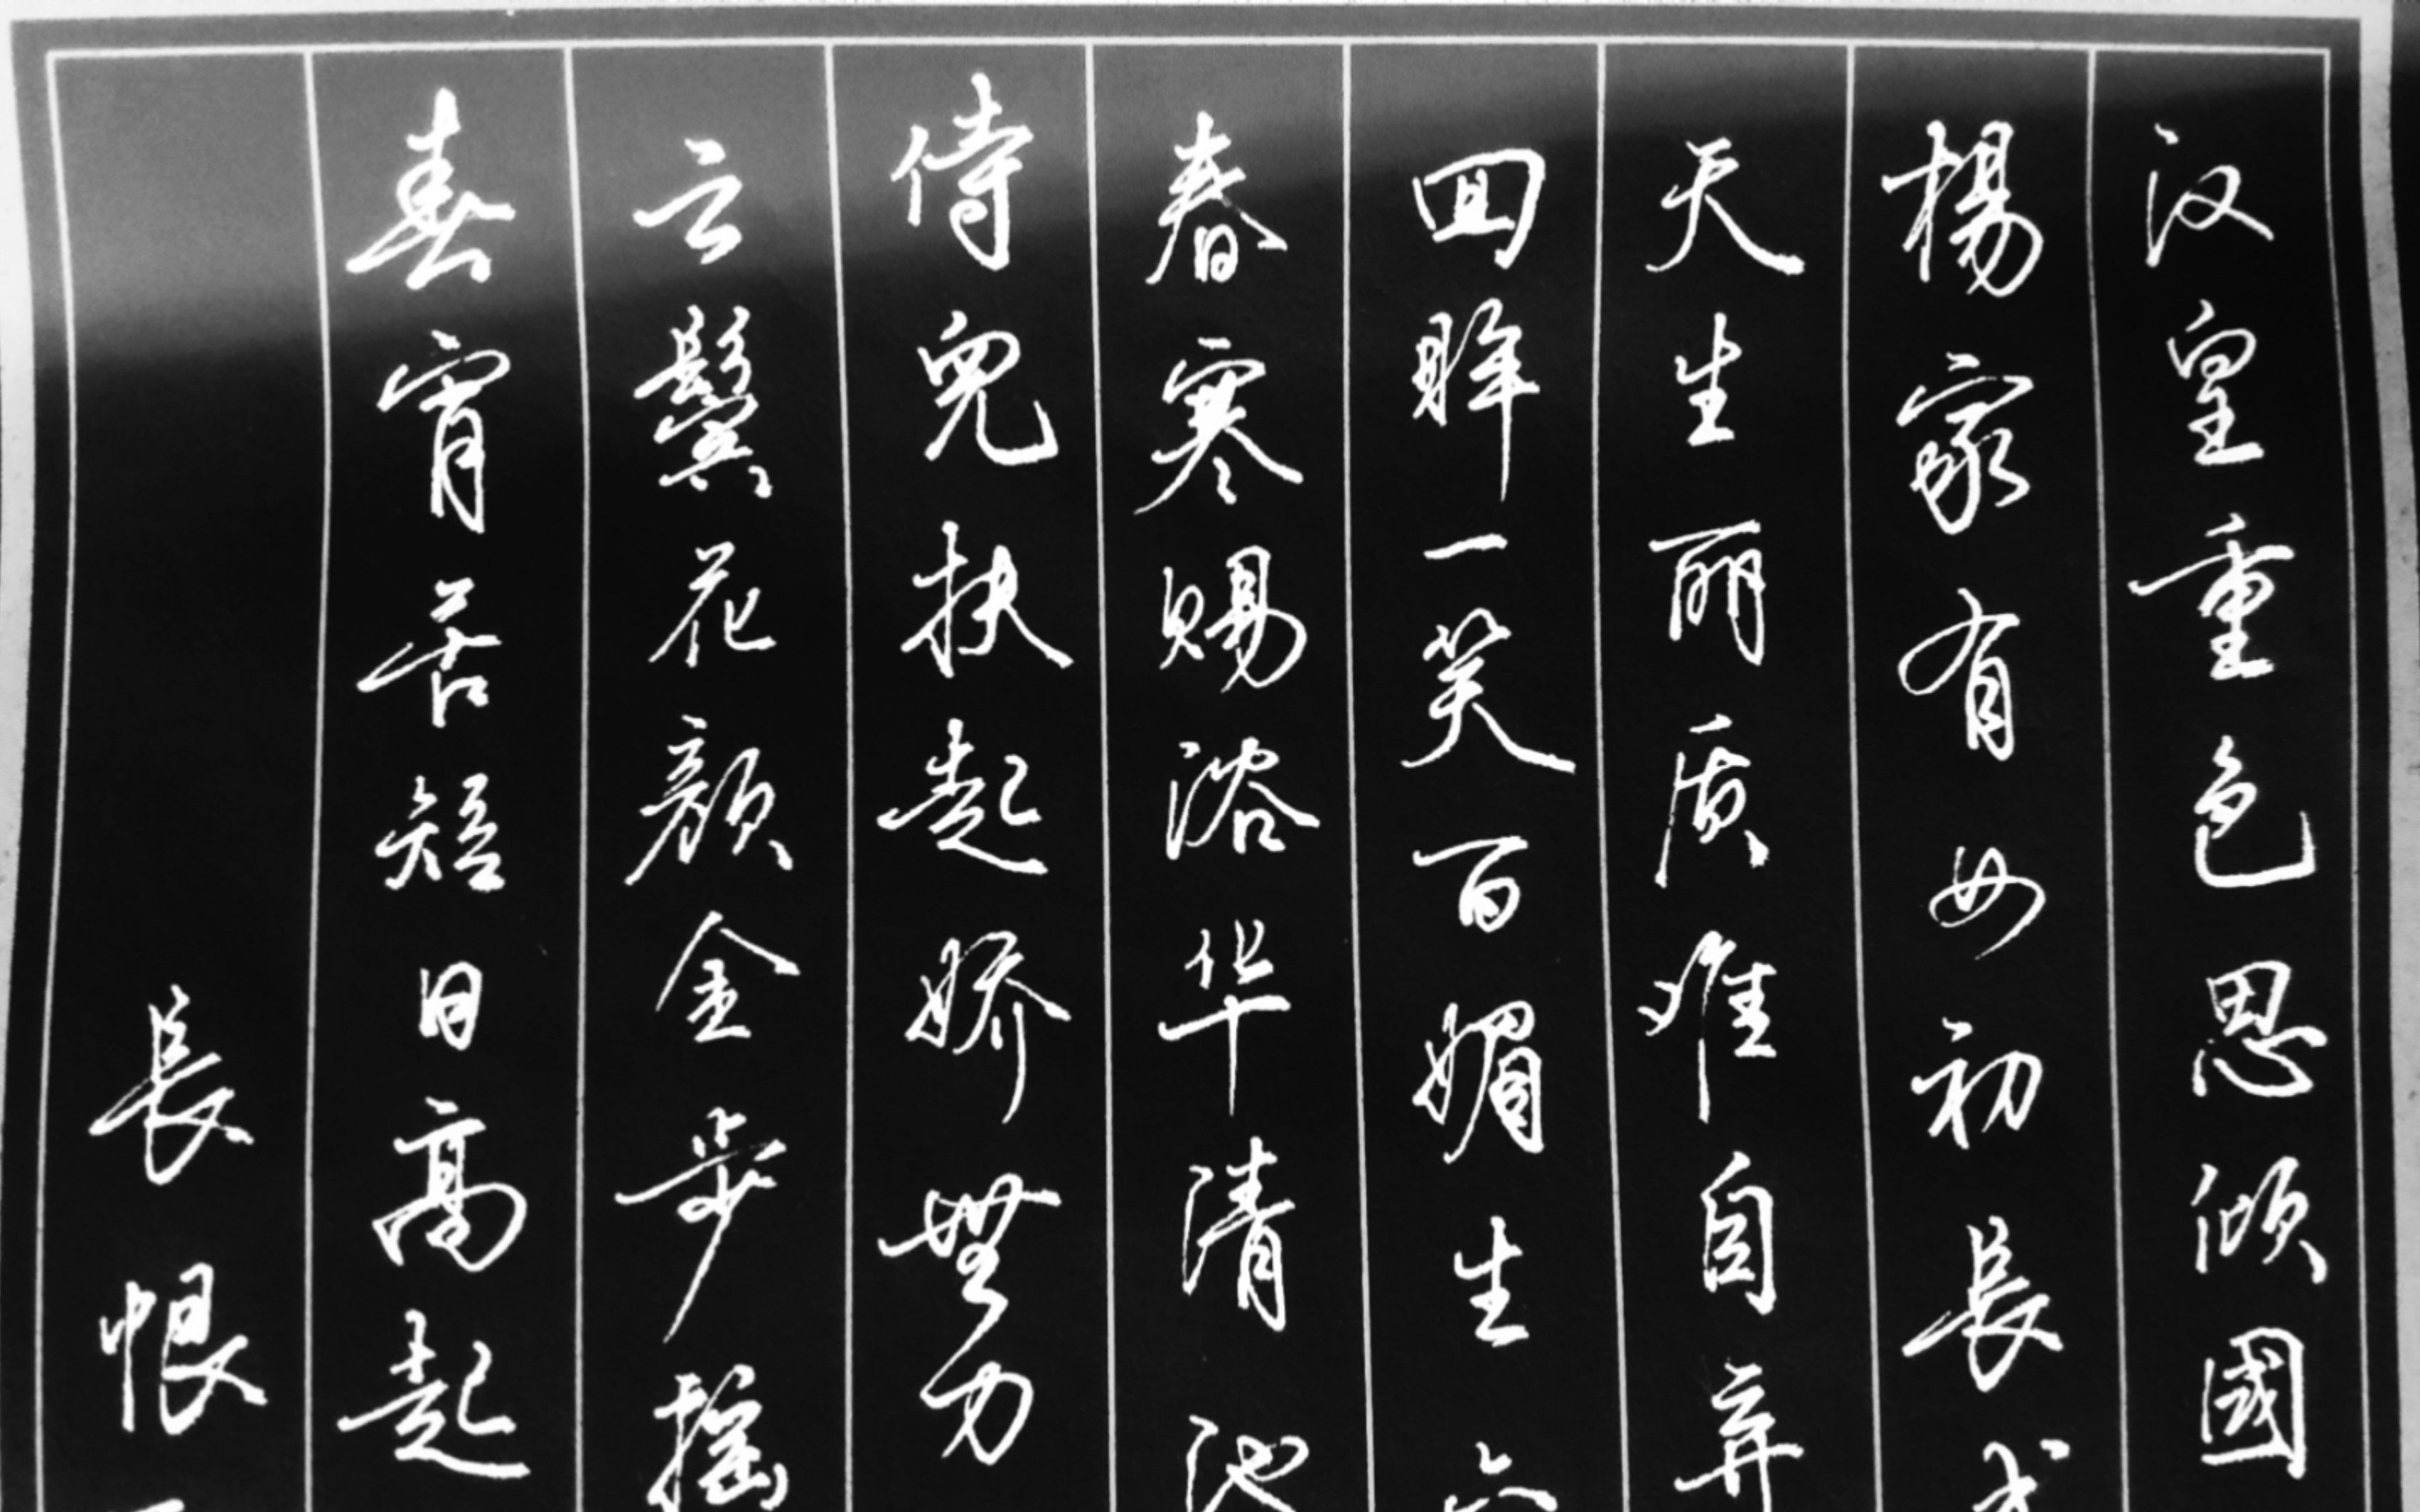 汉皇重色思倾國
楊家有女初長成
天生丽质难自弃
回眸一笑百媚生六
春寒赐浴华清池
侍兒扶起娇無力
云鬓花颜金步摇
春宵苦短日高起
長恨